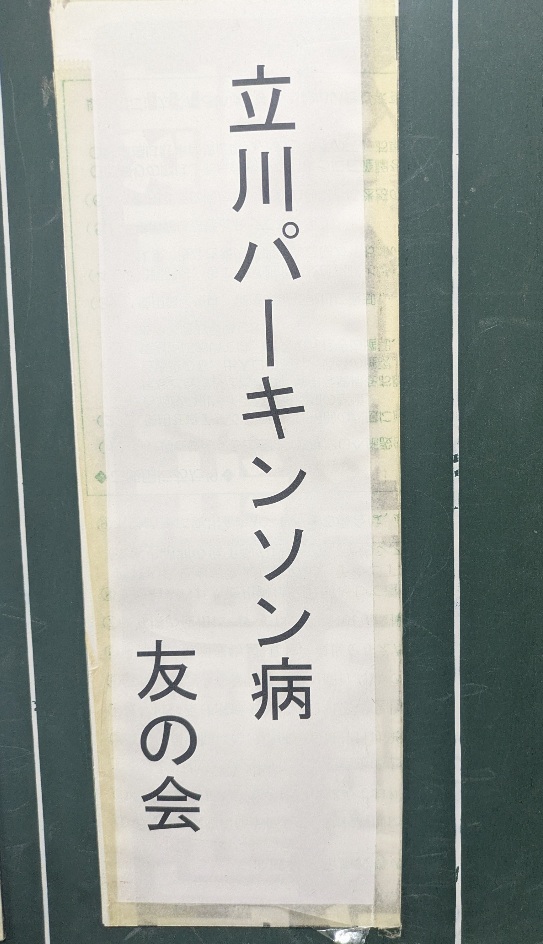 立川パーキンソン病
友の会